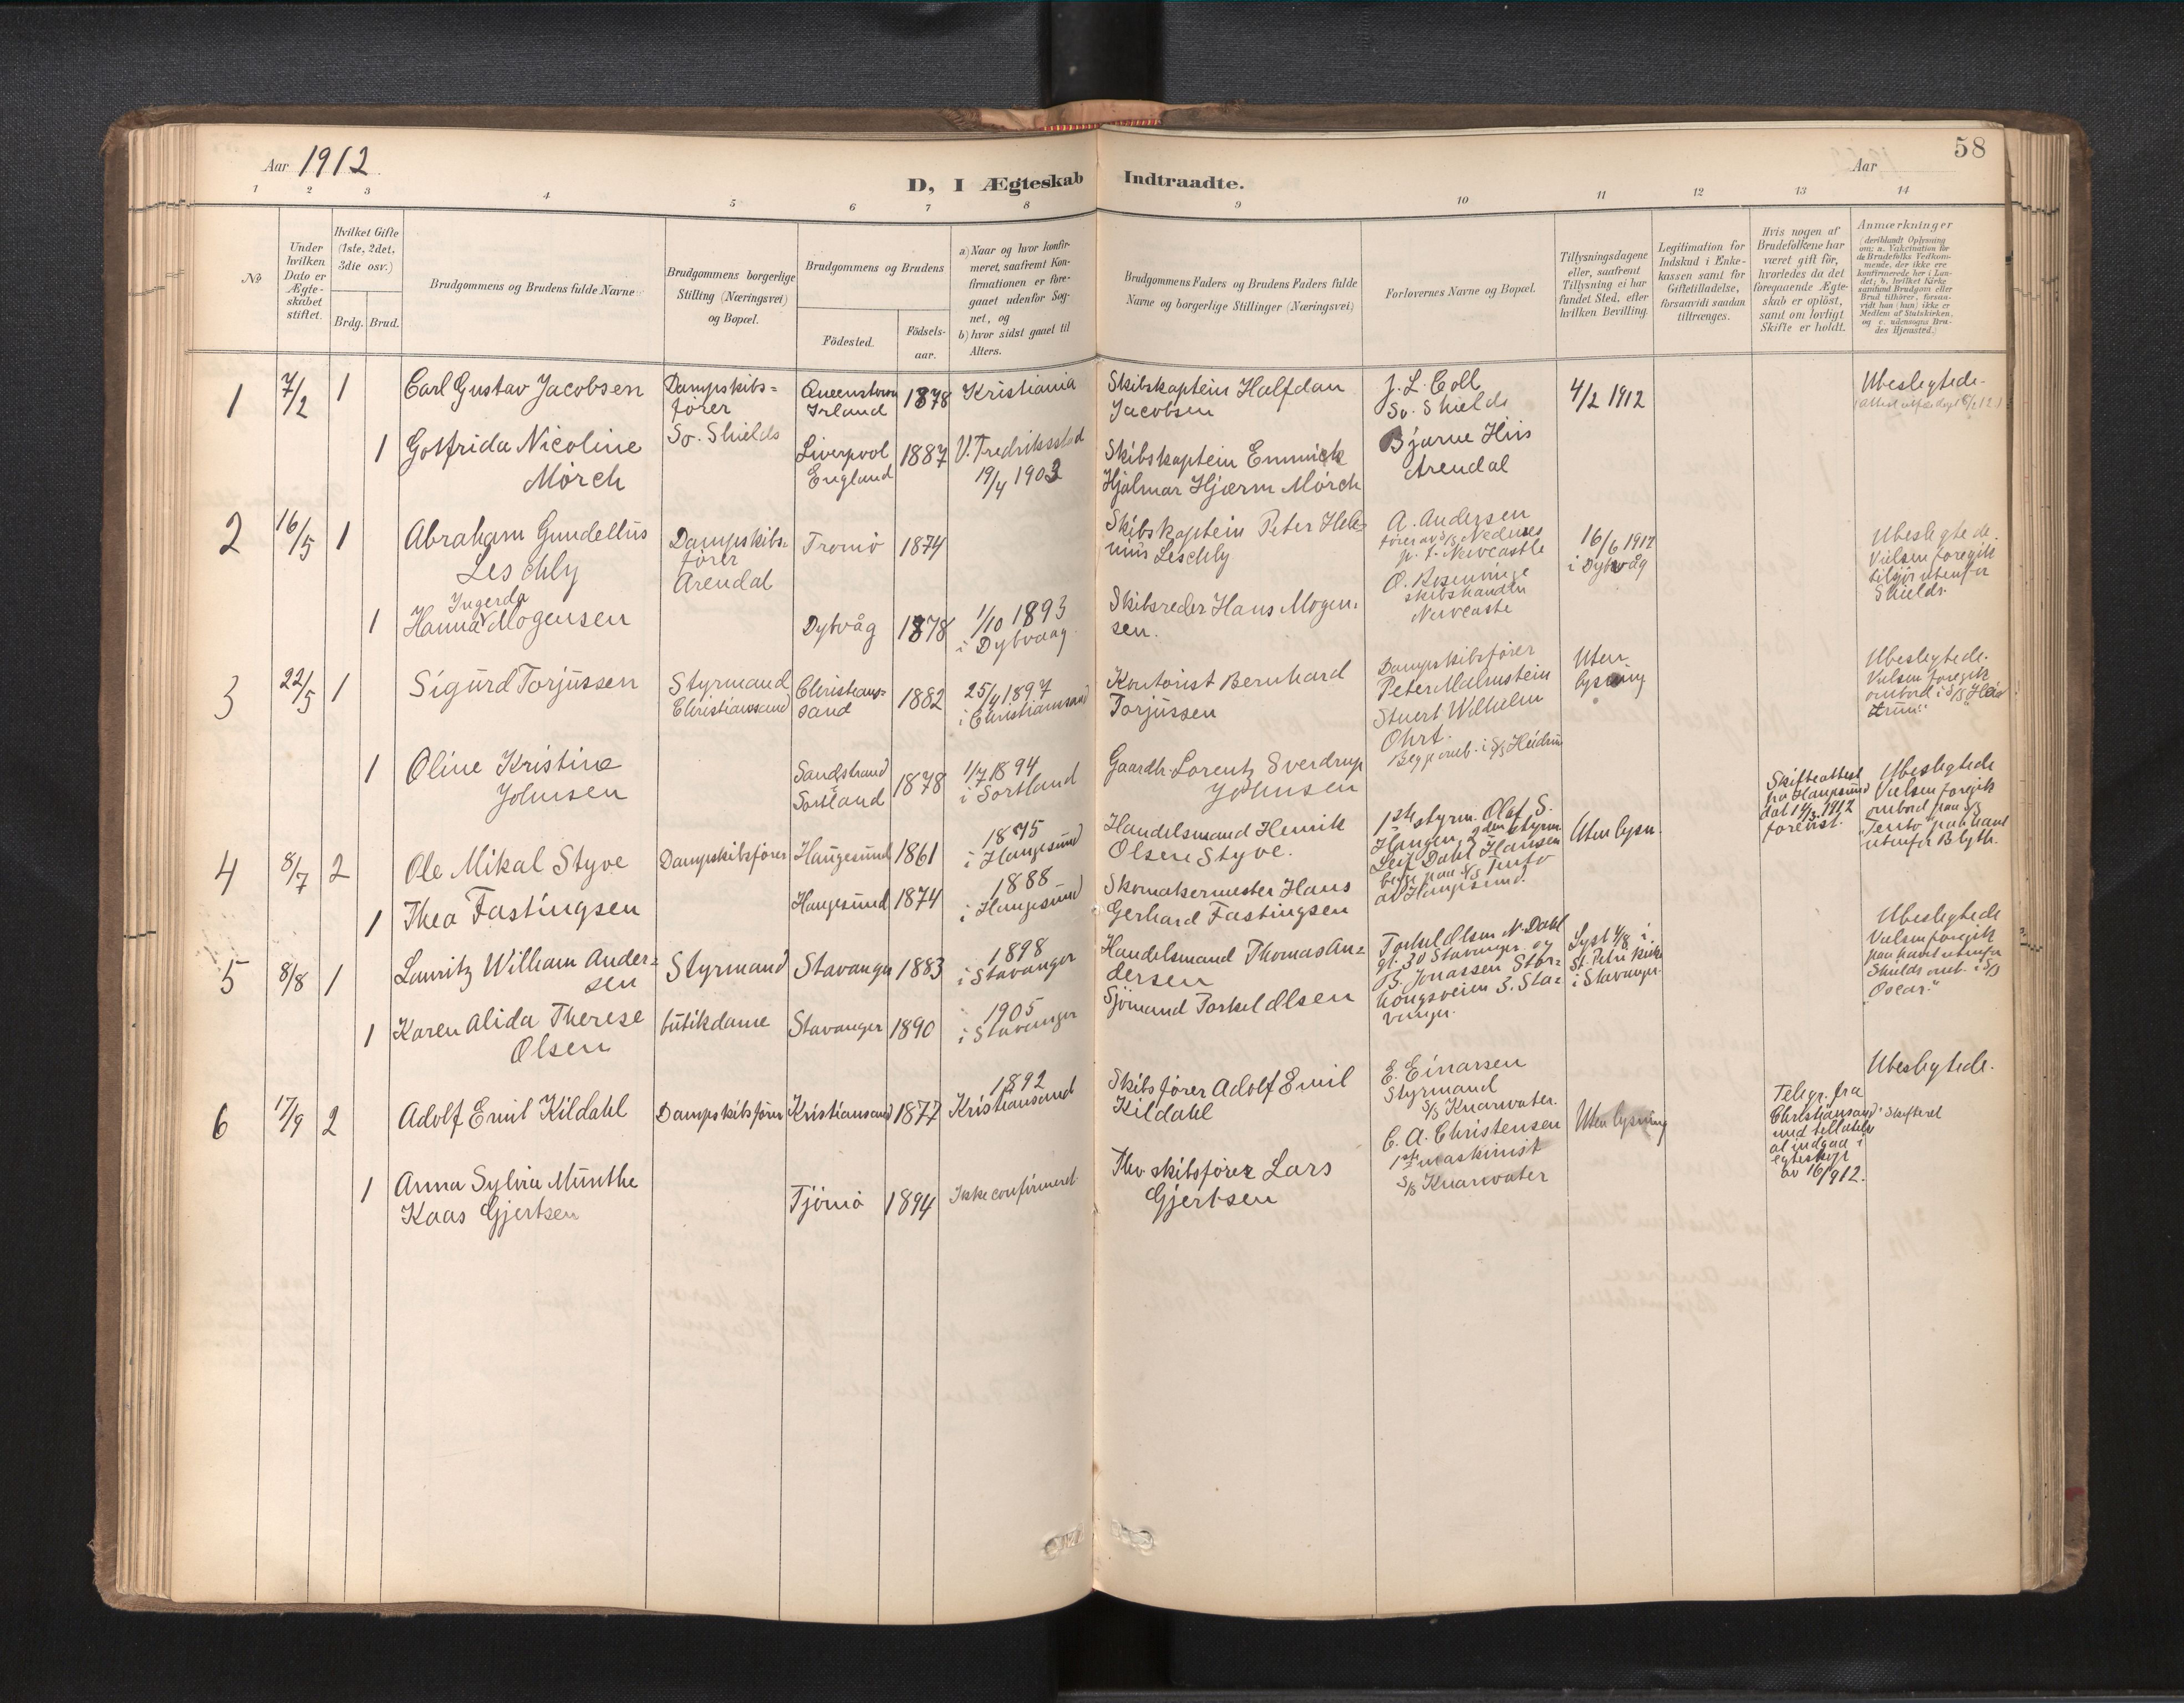 Aar 1912.
58
Aar
D, I Ægteskab Indtraadte.
1 2 3 4 5 6 7 8 9 10 11 12 13 14
No
Under hvilken Dato er Ægte-skabet stiftet.
Hvilket Gifte (1ste, 2det, 3die osv.)
Brdg. Brud.
Brudgommens og Brudens fulde Navne
Brudgommens borgerlige Stilling (Næringsvei) og Bopæl.
Brudgommens og Brudens
Födested.
Födsels-aar.
a) Naar og hvor konfir-meret, saafremt Kon-firmationen er fore-gaaet udenfor Sog-net, og
b) hvor sidst gaaet til Alters.
Brudgommens Faders og Brudens Faders fulde Navne og borgerlige Stillinger (Næringsvei)
Forlovernes Navne og Bopæl.
Tillysningsdagene eller, saafremt Tillysning ei har fundet Sted, efter hvilken Bevilling.
Legitimation for Indskud i Enke-kassen samt for Giftetilladelse, forsaavidt saadan tiltrænges.
Hvis nogen af Brudefolkene har været gift för, hvorledes da det foregaaende Ægte-skab er oplöst, samt om lovligt Skifte er holdt.
Anmærkninger
(deriblandt Oplysning om: a. Vakcination for de Brudefolks Vedkom-mende, der ikke ere konfirmerede her i Lan-det; b. hvilket Kirke-samfund Brudgom eller Brud tilhörer, forsaa-vidt han (hun) ikke er Medlem af Statskirken, og c. udensogns Bru-des Hjemsted.)
1
7/2
1
Carl Gustav Jacobsen
Dampskibs=
förer
So. Shields
Queenstown
Irland
1878
Kristiania
Skibskaptein Halfdan
Jacobsen
J. L. Coll
So. Shields
4/2 1912
Ubeslegtede.
1
Gotfrida Nicoline
Mörch
Liverpool
England
1887
V. Fredriksstad
19/4 1903
Skibskaptein Emmick
Hjalmar Hjærm Mörch
Bjarne Hiis
Arendal
2
16/5
1
Abraham Gundellus
Leschly
Dampskibs=
förer
Arendal
Tromö
1874
Skibskaptein Peter Hele=
nius Leschly
A. Andersen
förer av S/S Nedenes
p. t. Newcastle
16/6 1912
i Dybvåg
Ubeslegtede.
Vielsen foregik
utenfor
Shields.
1
Ingerda
Hanna Mogensen
Dybvåg
1878
1/10 1893
i Dybvaag
Skibsreder Hans Mogen=
sen.
O. Rosenvinge
skibshandler
Newcastle
3
22/5
1
Sigurd Torjussen
Styrmand
Christianssand
Christians=
sand
1882
25/4 1897
i Christianssand
Kontorist Bernhard
Torjussen
Dampskibsförer
Peter Malmstein
Stuert Wilhelm
Ohrt.
Begge omb. i S/S Heidrun
Uten
lysning
Ubeslegtede.
Vielsen foregik
ombord i S/S "Heid
run"
1
Oline Kristine
Johnsen
Sandstrand
Sortland
1878
1/7 1894
i Sortland
Gaardbr. Lorentz Sverdrup
Johnsen
4
8/7
2
Ole Mikal Styve
Dampskibsförer
Haugesund
1861
1875
i Haugesund
Handelsmand Henrik
Olsen Styve.
1ste styrm. Olaf S.
Haugen, 2den styrm.
Leif Dahl Hansen
begge paa S/S Tento
av Haugesund.
Uten lysn.
Skifteattest
fra Haugesund
dat 14/5 1912
forevist.
Ubeslegtede
Vielsen foregik
ombord paa S/S
"Tento" paa havet
utenfor Blyth.
1
Thea Fastingsen
Haugesund
1874
1888
i Haugesund
Skomakermester Hans
Gerhard Fastingsen
5
8/8
1
Lauritz William Ander=
sen
Styrmand
Stavanger
1883
1898
i Stavanger
Handelsmand Thomas An=
dersen
Torkel Olsen N. Dahl
gt. 30 Stavanger og
B. Jonassen Stor=
kongsveien 3. Sta=
vanger.
Lyst 4/8 i
St. Petri kirke
i Stavanger.
Ubeslegtede
Vielsen foregik
paa havet utenfor
Shields omb. i S/S
"Oscar."
1
Karen Alida Therese
Olsen
butikdame
Stavanger
1890
1905
i Stavanger
Sjömand Torkel Olsen
6
17/9
2
Adolf Emil Kildahl
Dampskibsförer
Kristiansand
1877
1892
Kristiansand
Skibsförer Adolf Emil
Kildahl
E. Einarsen
Styrmand
S/S Knarwater.
C. A. Christensen
1ste maskinist
S/S Knarwater
Uten lysning
Telegr. fra
Christiansand
med tilladelse
at indgaa i
egteskap
av 16/9 12.
Ubeslegtede.
1
Anna Sylvia Munthe
Kaas Gjertsen
Tjömö
1894
Ikke confirmeret.
Fhv skibsförer Lars
Gjertsen